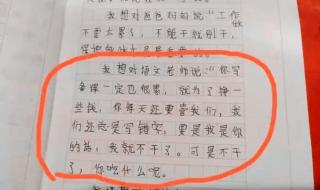 我想对爸爸妈妈说:“工作
不要太累了,不能干就别干,
我想对语文老师说:“你写
备课一定也很累,就为了挣一
些钱,你每天还要管我们,我
们还总是写错字,要是我是你
的话,我就不干了。可是不干
了,你吃什么呢。